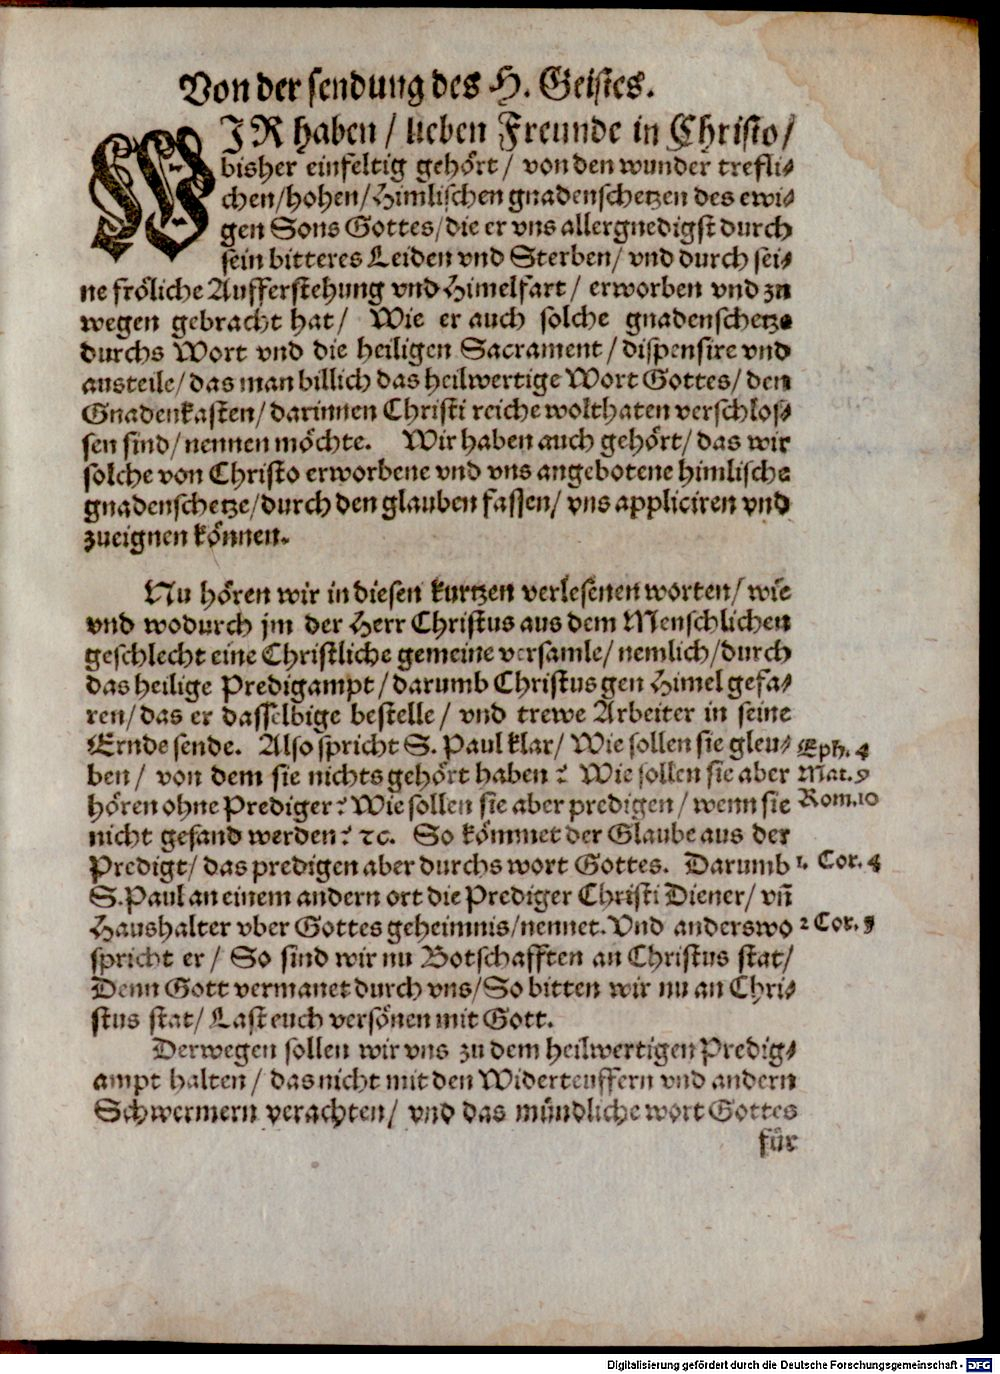 Von der sendung des H. Geistes.
WJR haben / lieben Freunde in Christo /
bisher einfeltig gehört / von den wunder trefli⸗
chen / hohen / Himlischen gnadenschetzen des ewi⸗
gen Sons Gottes / die er vns allergnedigst durch
sein bitteres Leiden vnd Sterben / vnd durch sei⸗
ne fröliche Aufferstehung vnd Himelfart / erworben vnd zu
wegen gebracht hat / Wie er auch solche gnadenschetze
durchs Wort vnd die heiligen Sacrament / dispensire vnd
austeile / das man billich das heilwertige Wort Gottes / den
Gnadenkasten / darinnen Christi reiche wolthaten verschlos⸗
sen sind / nennen möchte. Wir haben auch gehört / das wir
solche von Christo erworbene vnd vns angebotene himlische
gnadenschetze / durch den glauben fassen / vns appliciren vnd
zueignen können.
Nu hören wir in diesen kurtzen verlesenen worten / wie
vnd wodurch jm der Herr Christus aus dem Menschlichen
geschlecht eine Christliche gemeine versamle / nemlich / durch
das heilige Predigampt / darumb Christus gen Himel gefa⸗
ren / das er dasselbige bestelle / vnd trewe Arbeiter in seine
Ernde sende. Also spricht S. Paul klar / Wie sollen sie gleu⸗ Eph. 4
ben / von dem sie nichts gehört haben? Wie sollen sie aber Mat. 9
hören ohne Prediger? Wie sollen sie aber predigen / wenn sie Rom. 10
nicht gesand werden? ꝛc. So kömmet der Glaube aus der
Predigt / das predigen aber durchs wort Gottes. Darumb 1. Cor. 4
S. Paul an einem andern ort die Prediger Christi Diener / vñ
Haushalter vber Gottes geheimnis / nennet. Vnd anderswo 2 Cor. 5
spricht er / So sind wir nu Botschafften an Christus stat /
Denn Gott vermanet durch vns / So bitten wir nu an Chri⸗
stus stat / Last euch versönen mit Gott.
Derwegen sollen wir vns zu dem heilwertigen Predig⸗
ampt halten / das nicht mit den Widerteuffern vnd andern
Schwermern verachten / vnd das mündliche wort Gottes
für
Digitalisierung gefördert durch die Deutsche Forschungsgemeinschaft - DFG